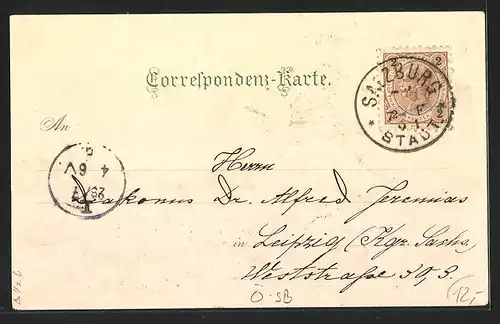 Correspondenz-Karte.
2 2
SALZBURG
2 2
STADT
An
Herrn
Diakonus Dr. Alfred Jeremias
in Leipzig (Kgr. Sachs.
Weststraße
O. SB
12,-